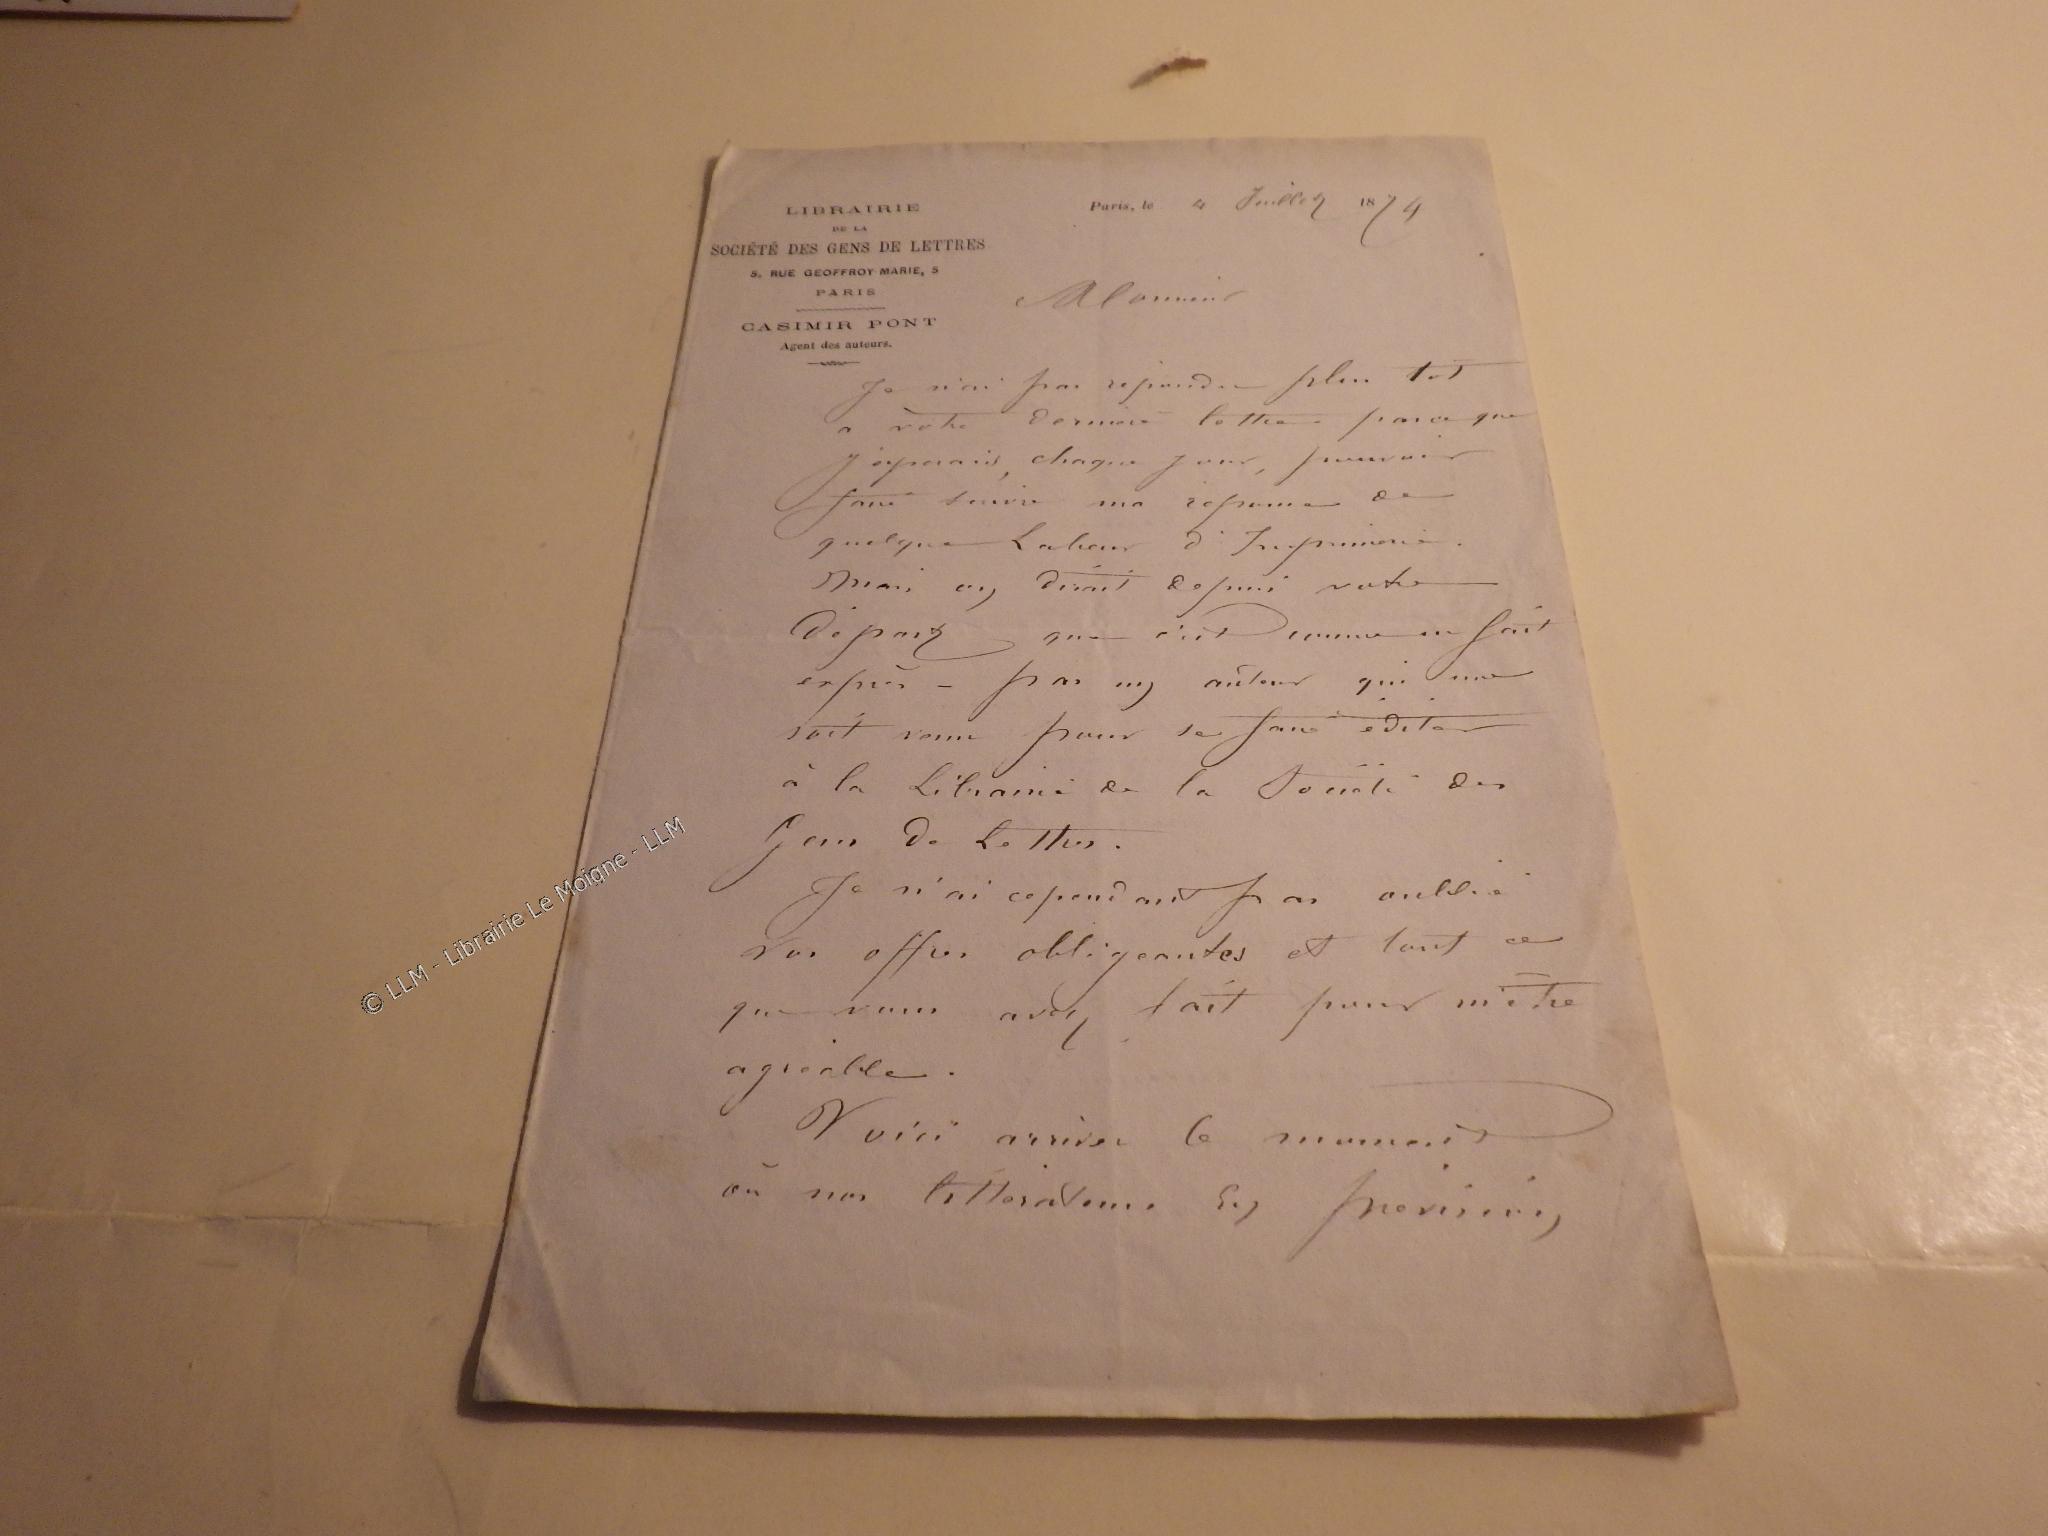 LIBRAIRIE
DE LA
SOCIÉTÉ DES GENS DE LETTRES
5, RUE GEOFFROY-MARIE, 5
PARIS
CASIMIR PONT
Agent des auteurs.
Paris, le 4 Juillet 1874
Monsieur
Je n'ai pas répondu plus tôt
a votre dernière lettre parce que
j'espérais, chaque jour, pouvoir
faire suivre ma réponse de
quelque Labeur d'Imprimerie.
Mais on dirait depuis votre
départ que c'est comme un fait
exprès - pas un auteur qui me
soit venu pour se faire éditer
à la Librairie de la Société des
Gens de Lettres.
Je n'ai cependant pas oublié
vos offres obligeantes et tout ce
que vous avez fait pour m'être
agréable.
Voici arriver le moment
où nos littérateurs en prévision
© LLM - Librairie Le Moigne - LLM